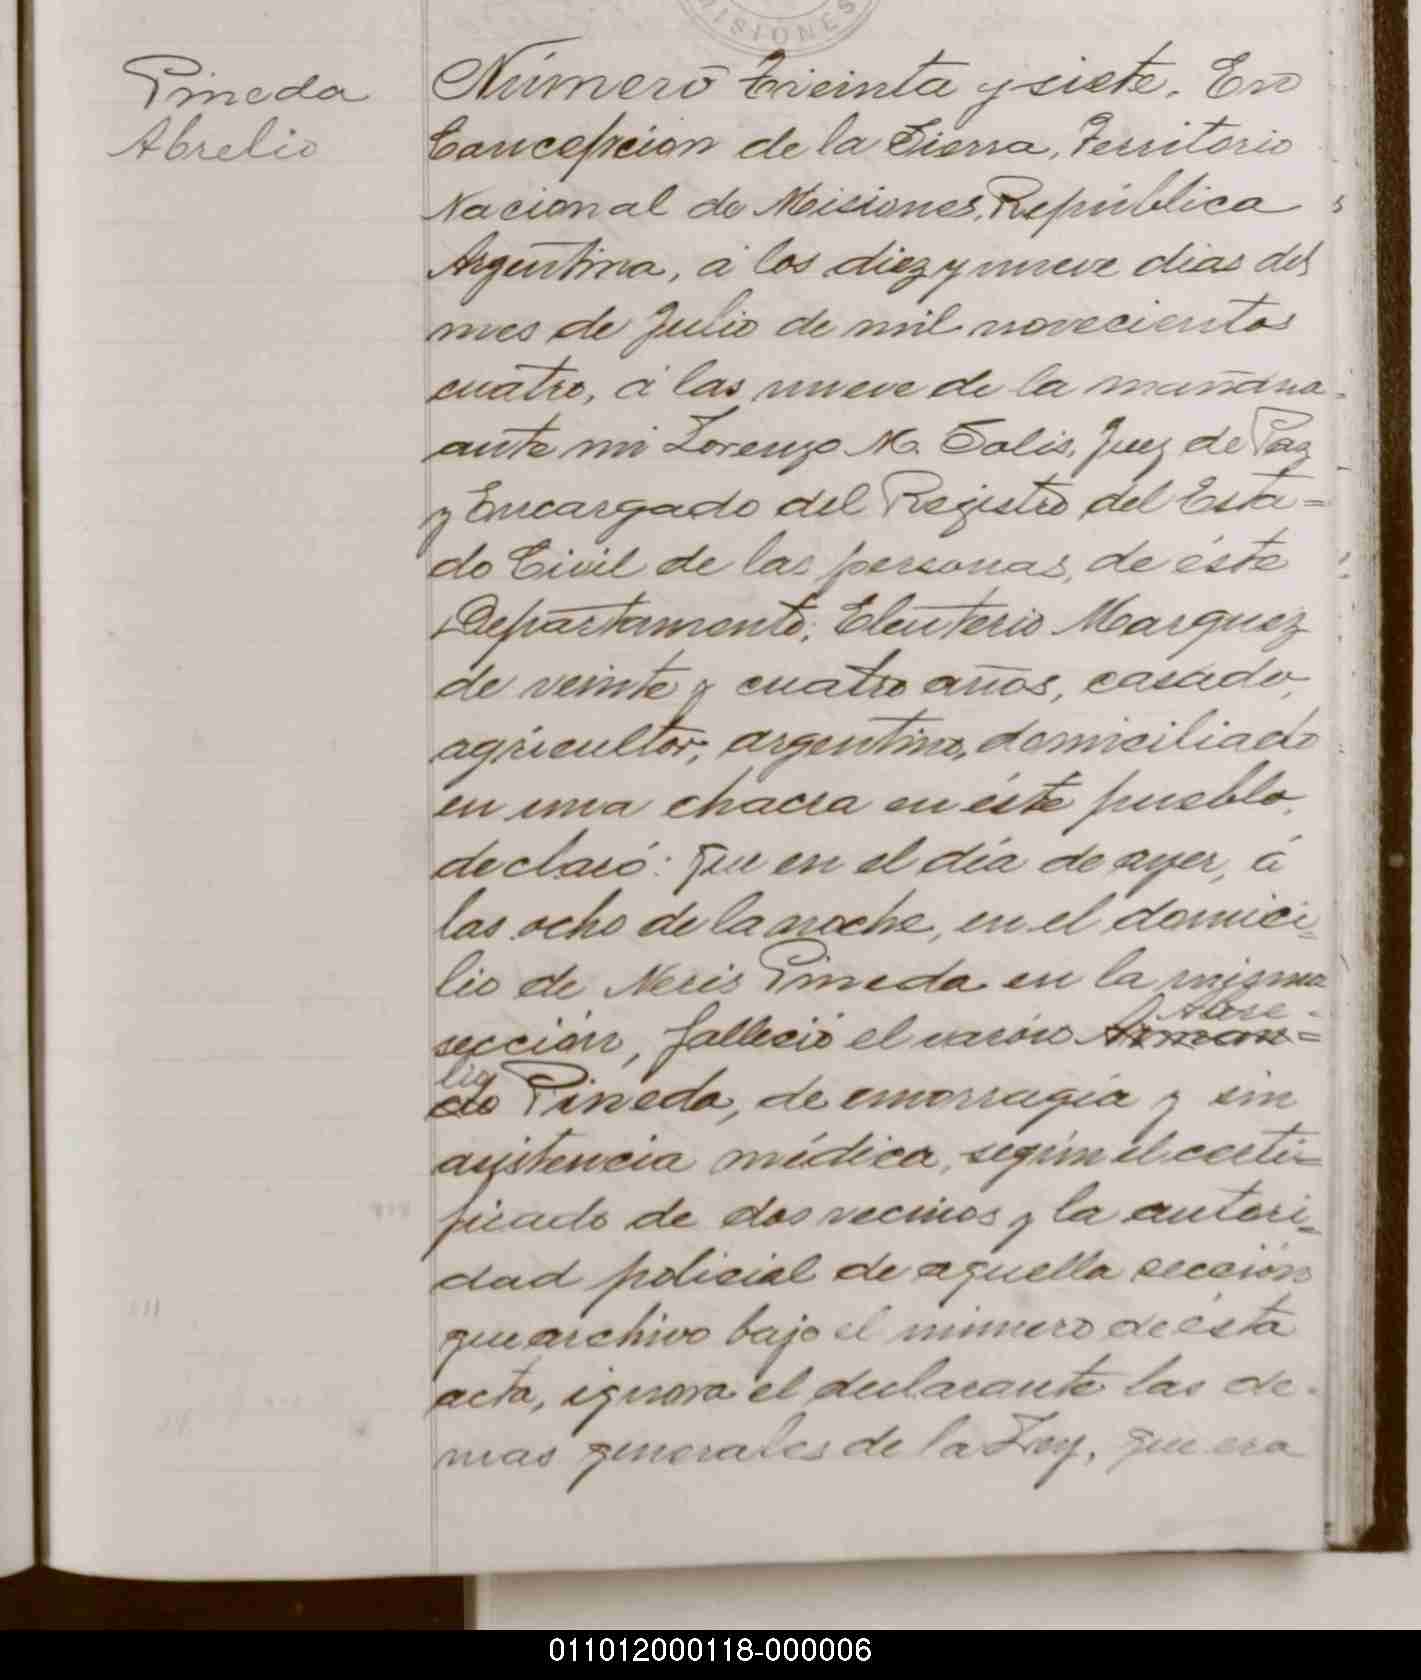 MISIONES
Pineda
Abrelio
Número Treinta y siete. En
Concepción de la Sierra, Territorio
Nacional de Misiones, República
Argentina, á los diez y nueve dias del
mes de Julio de mil novecientos
cuatro, á las nueve de la mañana
ante mi Lorenzo M. Solis, Juez de Paz
y Encargado del Registro del Esta=
do Civil de las personas, de éste
Departamento; Eleuterio Marquez
de veinte y cuatro años, casado,
agricultor, argentino, domiciliado
en una chacra en éste pueblo,
declaró: Que en el día de ayer, á
las ocho de la noche, en el domici=
lio de Neris Pineda en la misma
Abre=
sección, falleció el varón Arman=
lio
do Pineda, de emorragia y sin
asistencia médica, según el certi=
ficado de dos vecinos y la autori=
dad policial de aquella sección
que archivo bajo el número de ésta
acta, ignora el declarante las de-
mas generales de la Ley, que era
011012000118-000006